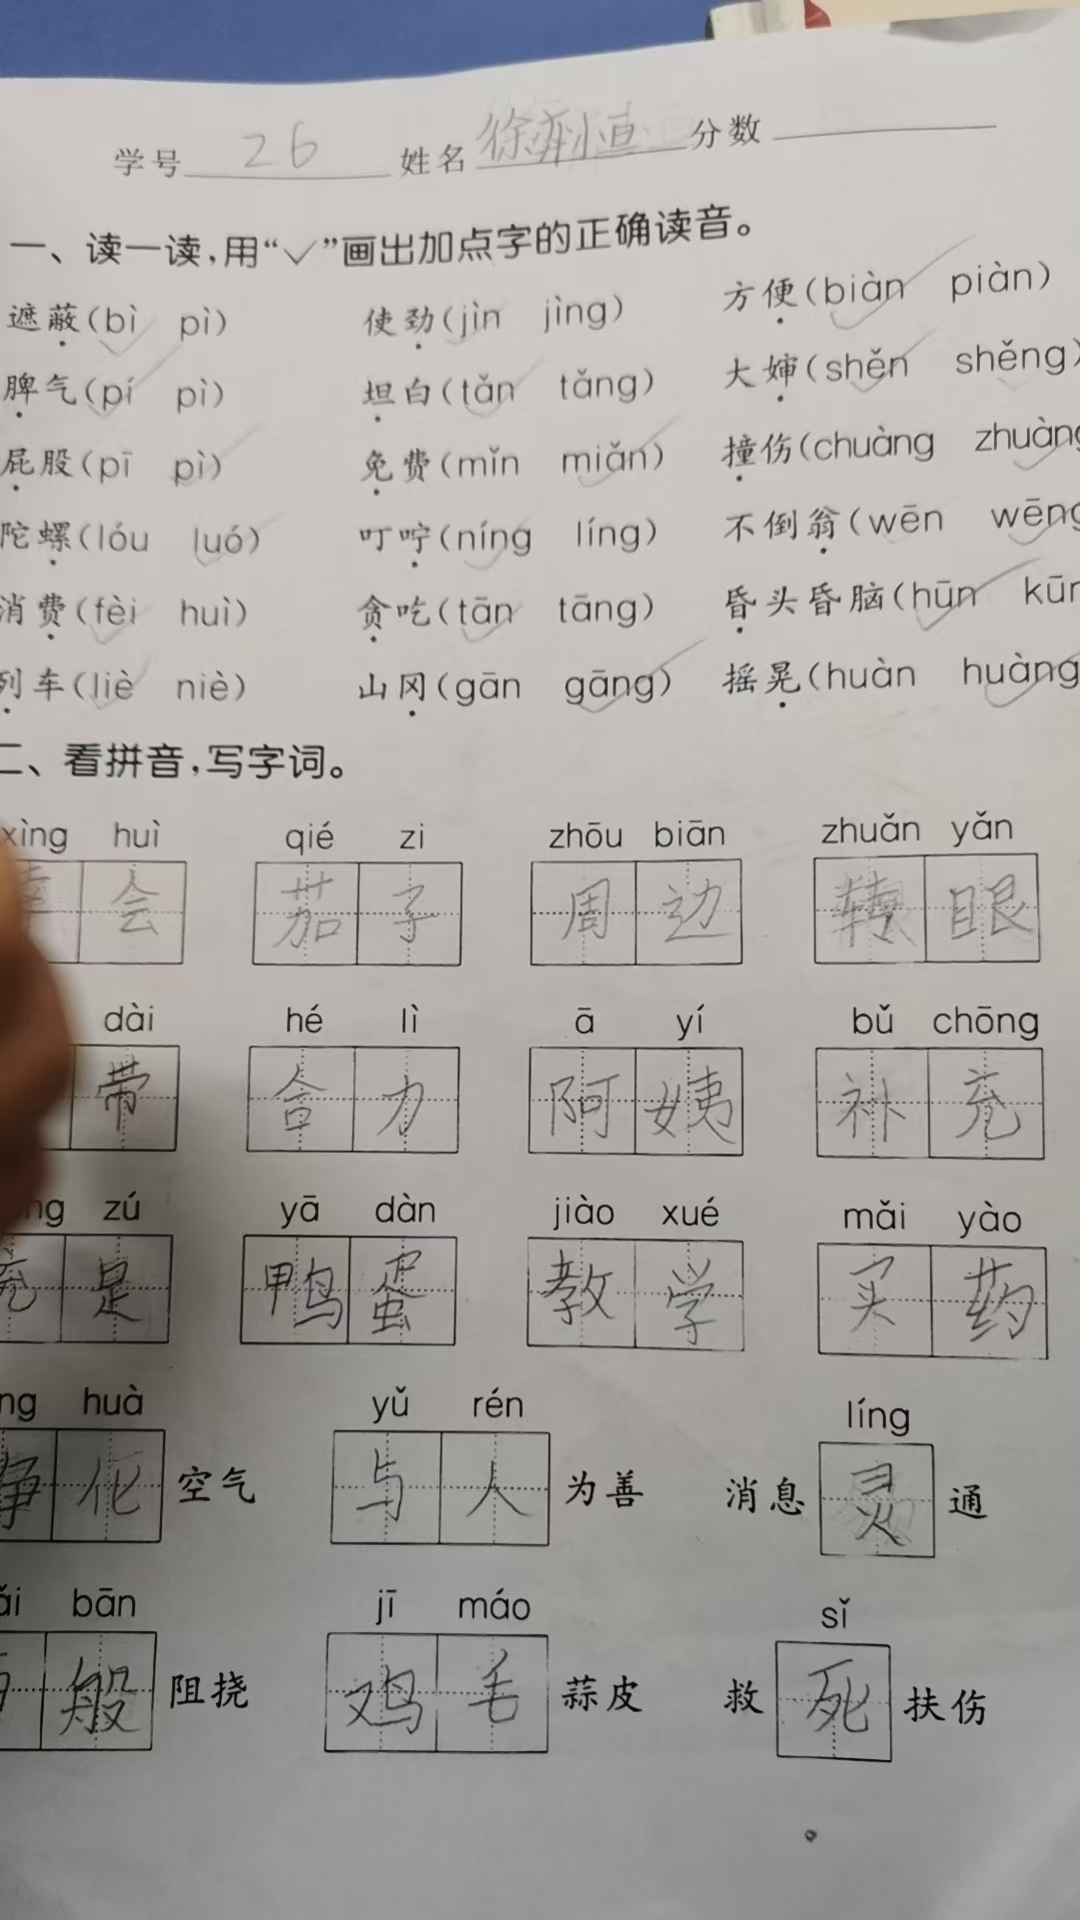 学号 26 姓名 徐 恒 分数
一、读一读,用“✓”画出加点字的正确读音。
遮蔽(bì pì) 使劲(jìn jìng) 方便(biàn piàn)
脾气(pí pì) 坦白(tǎn tǎng) 大婶(shěn shěng)
屁股(pī pì) 免费(mǐn miǎn) 撞伤(chuàng zhuàng
陀螺(lóu luó) 叮咛(níng líng) 不倒翁(wēn wēng
消费(fèi huì) 贪吃(tān tāng) 昏头昏脑(hūn kūn
列车(liè niè) 山冈(gān gāng) 摇晃(huàn huàng
二、看拼音,写字词。
xìng huì qié zi zhōu biān zhuǎn yǎn
会 茄子 周边 转眼
dài hé lì ā yí bǔ chōng
带 合力 阿姨 补充
ng zú yā dàn jiào xué mǎi yào
充是 鸭蛋 教学 买药
ng huà yǔ rén líng
净化 空气 与人 为善 消息 灵 通
ǎi bān jī máo sǐ
般 阻挠 鸡毛 蒜皮 救 死 扶伤